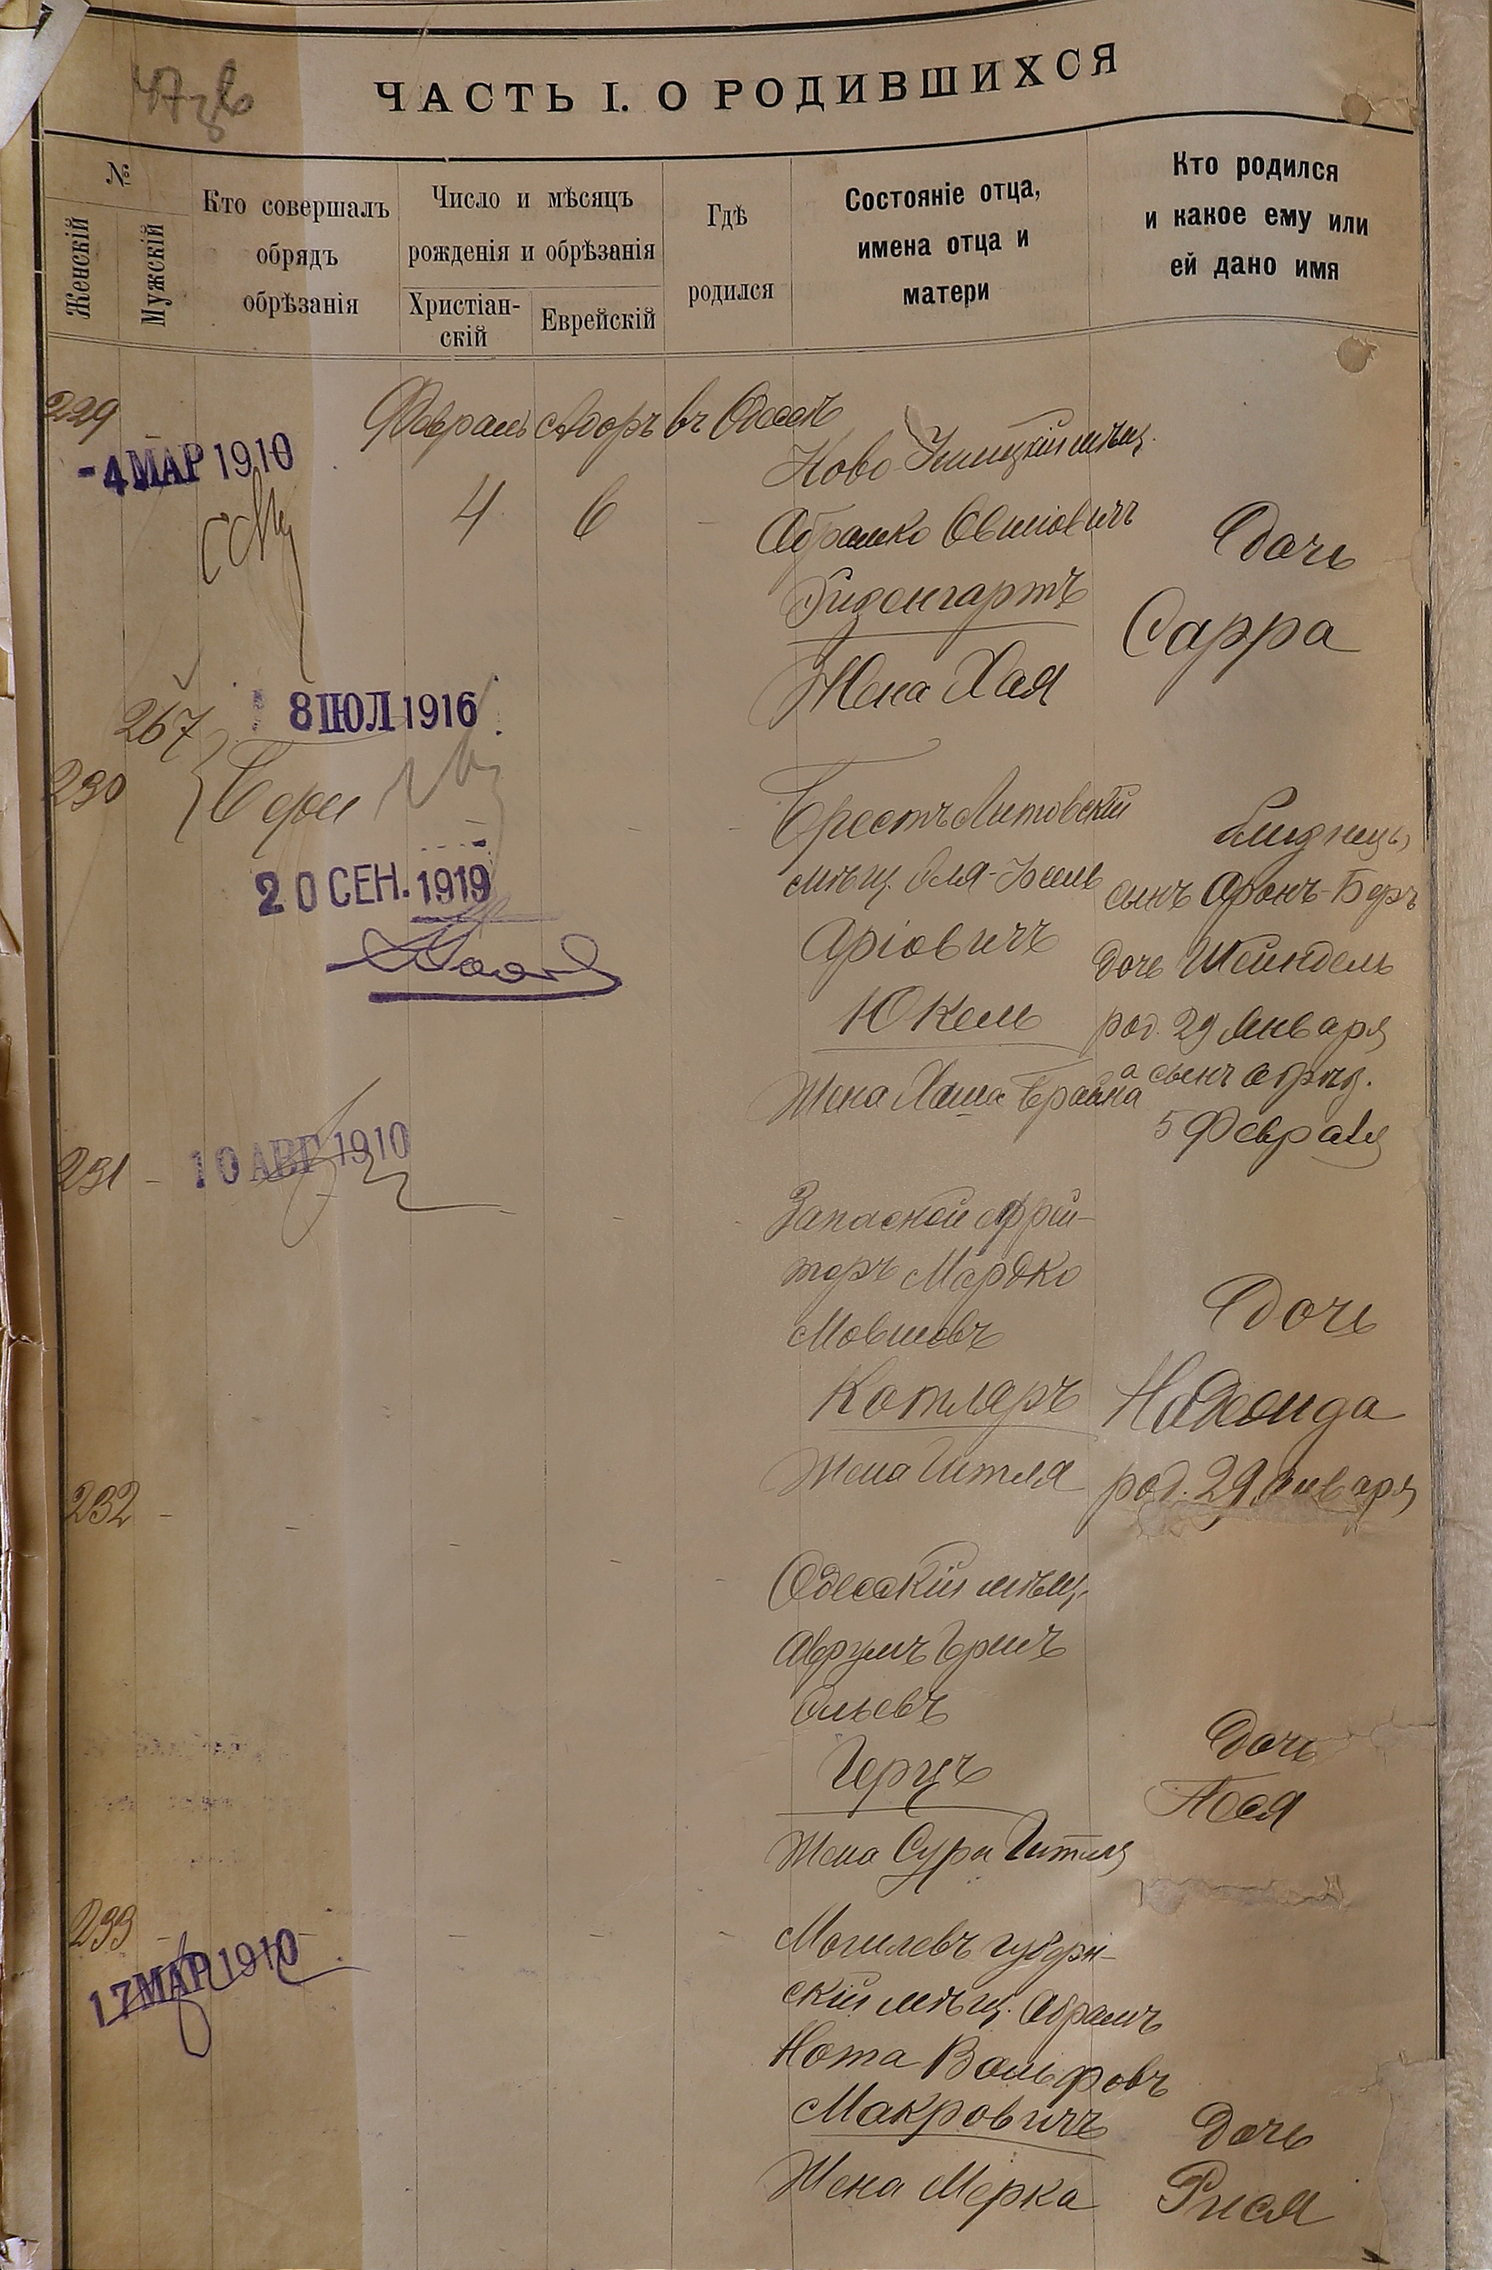 ЧАСТЬ I. О РОДИВШИХСЯ
№
Женскій
Мужскій
Кто совершалъ
обрядъ
обрѣзанія
Число и мѣсяцъ
рожденія и обрѣзанія
Христіан-
скій
Еврейскій
Гдѣ
родился
Состояніе отца,
имена отца и
матери
Кто родился
и какое ему или
ей дано имя
229
-4 МАР 1910
Февраль Адоръ въ Одессѣ
4 6
Ново-Ушицкій мѣщ.
Абрамко Овшіовичъ
Гизенгартъ
Жена Хая
Дочь
Сарра
267
230
8 ІЮЛ 1916
20 СЕН. 1919
Брестъ Литовскій
мѣщ. Эля-
Аріовичъ
Юкель
Жена Хаша Брайна
близнецы,
сынъ Аронъ-Беръ
дочь Шейндель
род. 29 января
а сынъ обрѣз.
5 Февраля
231
10 АВГ 1910
Запасной ефрей-
торъ Мардко
Мовшовъ
Котляръ
Жена Гитля
Дочь
Надежда
род. 29 января
232
Одесскій мѣщ.
Аврумъ Гершъ
Эльевъ
Герцъ
Жена Сура Гитля
Дочь
Песя
233
17 МАР 1910
Могилевъ губерн-
скій мѣщ. Абрамъ
Нота Вольфовъ
Макровичъ
Жена Мерка
Дочь
Рися